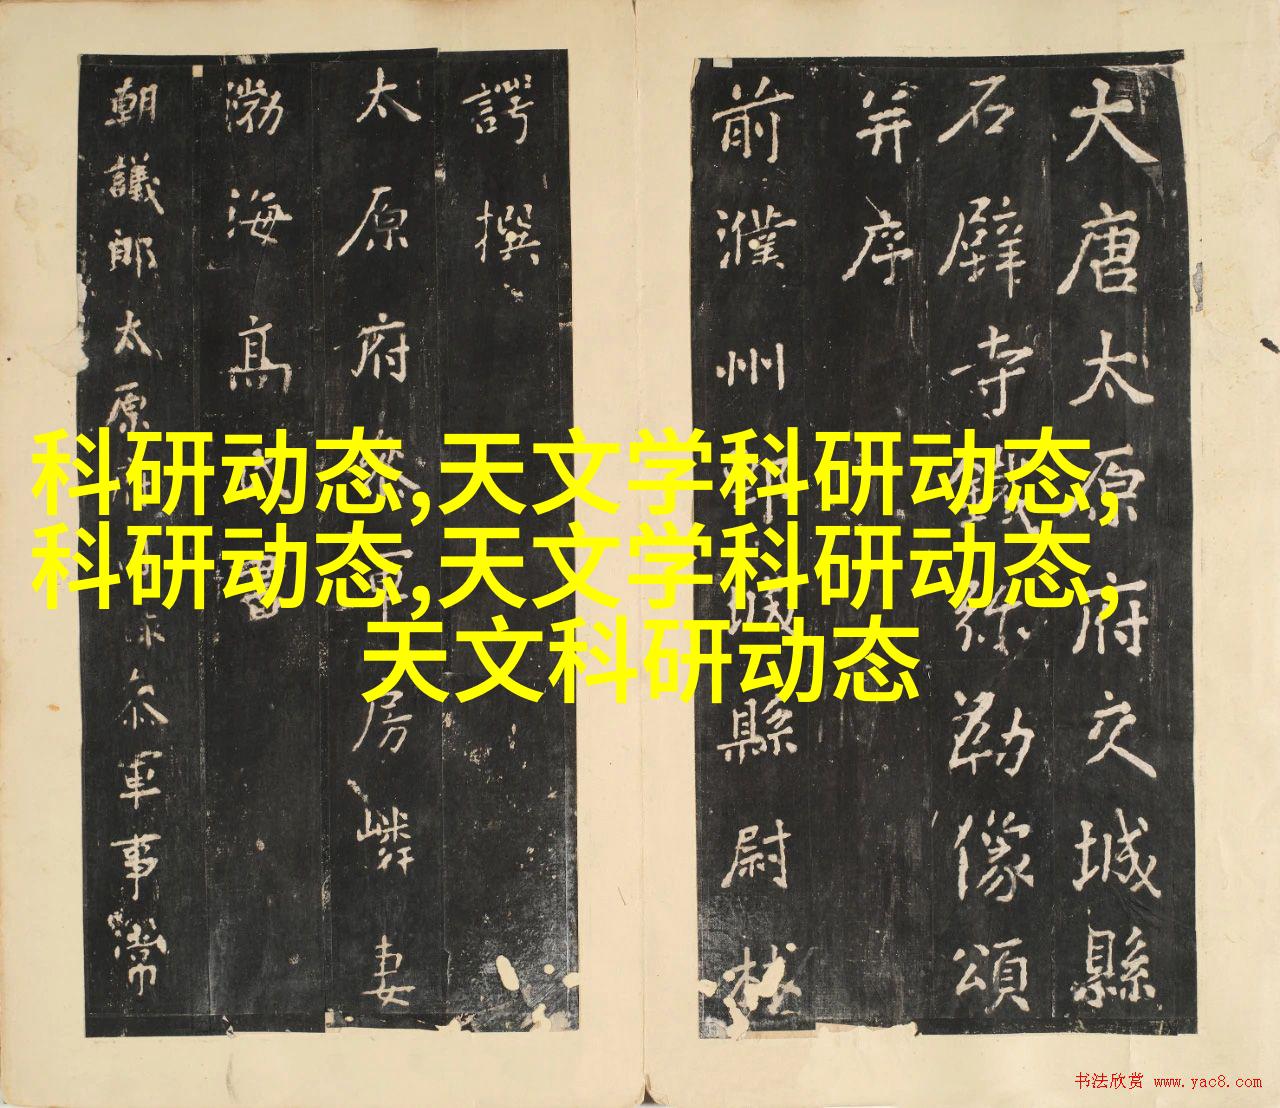 大唐太原府交城縣
石壁寺鐵弥勒像頌
并序
前濮州鄄城縣尉林
諤撰
太原府叅軍房嶙妻
渤海高氏書
朝議郎太原叅軍事常
科研动态,天文学科研动态,
科研动态,天文学科研动态,
天文科研动态
书法欣赏 www.yac8.com